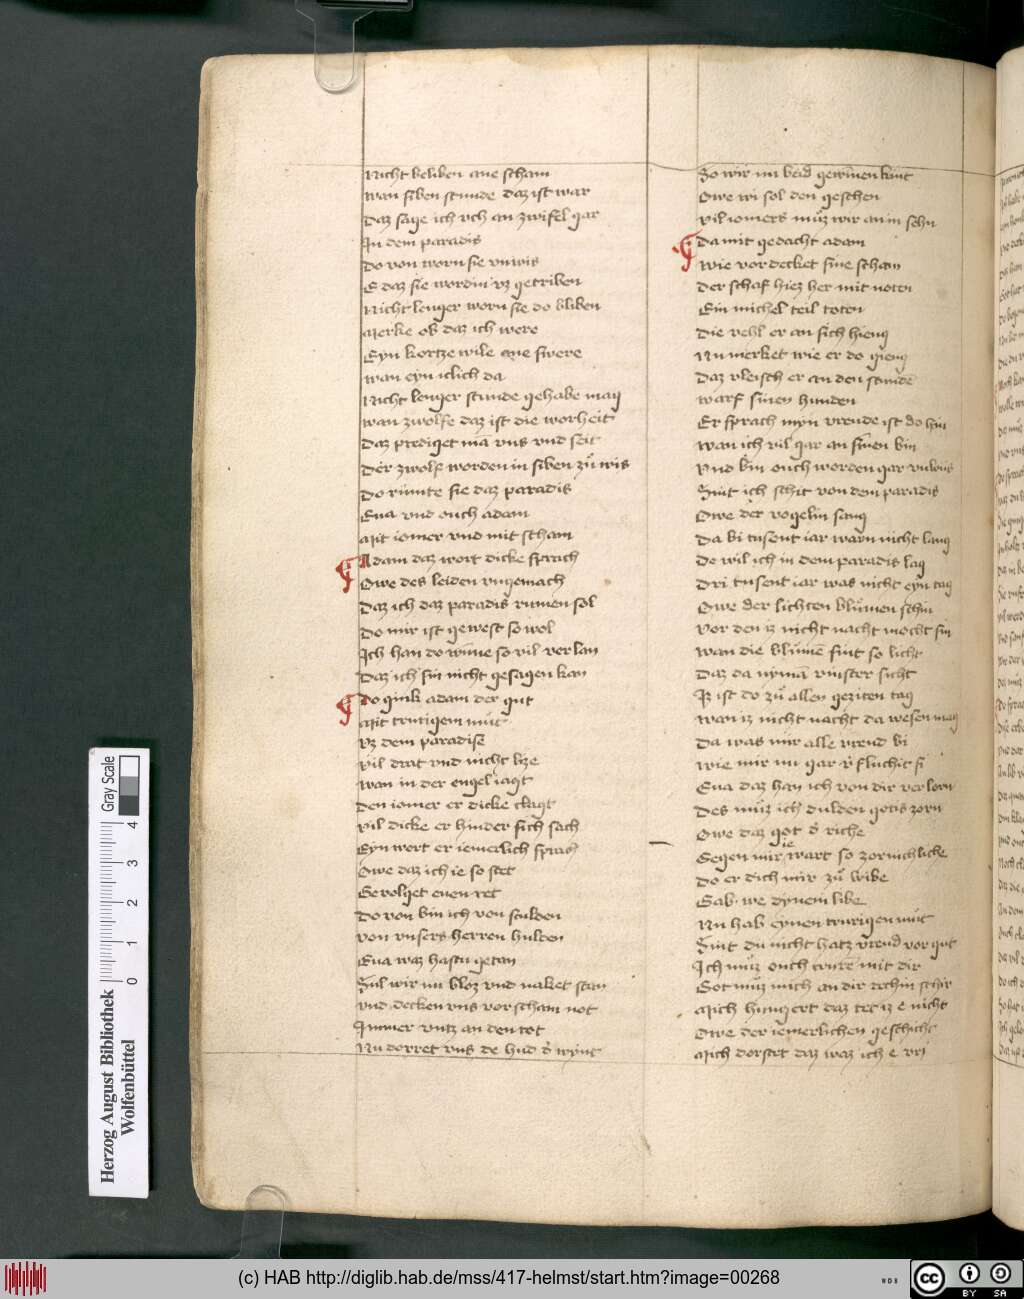 Nicht beliben ane scham
wan siben stunde daz ist war
Daz sage ich vch an zwifel gar
In dem paradis
Do von worn sie vnwis
E daz sie wordin vz getriben
Nicht lenger worn sie do bliben
Merke ob daz ich were
Eyn kortze wile ane swere
wan eyn iclich da
Nicht lenger stunde gehabē mag
wan zwolfe daz ist die worheit
Daz prediget ma vns vnd seit
Der zwolf worden in siben zů wis
Do rumte sie daz paradis
Eua vnd ouch adam
Mit iomer vnd mit scham
Adam daz wort dicke sprach
Owe des leiden vngemach
Daz ich daz paradis rumen sol
Do mir ist gewest so wol
Ich han do wūne so vil verlan
Daz ich sin nicht gesagen kan
Do gink adam der gut
Mit trurigem mut
vz dem paradise
vil drat vnd nicht lize
wan in der engel iagt
Den iomer er dicke clagt
vil dicke er hinder sich sach
Eyn wort er iemerlich sprach
Owe daz ich ie so stet
Gevolget euen ret
Do von bin ich von sculden
von vnsers herren hulden
Eua waz hastu getan
Sul wir nu bloz vnd naket stan
vnd decken vns vor scham not
Immer vntz an den tot
Nu dorret vns de hud d̄ wint
So wir nu beid gewīnen kint
Owe wi sol den geschen
vil iomers můz wir an in sehn
Da mit gedacht adam
wie vor decket sine scham
Der schaf hiez her mit noten
Ein michel teil toten
Die vehl er an sich hieng
Nu merket wie er do gieng
Daz vleisch er an den stundē
warf sinen hunden
Er sprach myn vreude ist do hin
wan ich vil gar an sinen bin
Vnd bin ouch worden gar vnwis
Sint ich schit von dem paradis
Owe der vogelin sang
Da bi tusent iar warn nicht lang
De wil ich in dem paradis lag
Dri tusent iar was nicht eyn tag
Owe der lichten blůmen schin
vor den iz nicht nacht mocht sin
wan die blůmē sint so licht
Daz da nymā vinster sicht
Iz ist do zů allen geziten tag
wan iz nicht nacht da wesen mag
Da was mir alle vreud bi
wie mir nu gar v̄fluchit si
Eua daz han ich von dir verlorn
Des můz ich dulden gotis zorn
Owe daz got d̄ riche
Gegen mir ie wart so zornichliche
Do er dich mir zů wibe
Gab we dynem libe
Nu hab eynen trurigen mut
Sint du nicht hatz vreud vor gut
Ich můz ouch trurē mit dir
Got můz mich an dir rechin schir
Mich hungert daz tet iz e nicht
Owe der iemerlichen geschicht
Mich dorstet daz waz ich e vri
Herzog August Bibliothek
Wolfenbüttel
0 1 2 3 4
Gray Scale
(c) HAB http://diglib.hab.de/mss/417-helmst/start.htm?image=00268
WDB
cc BY SA